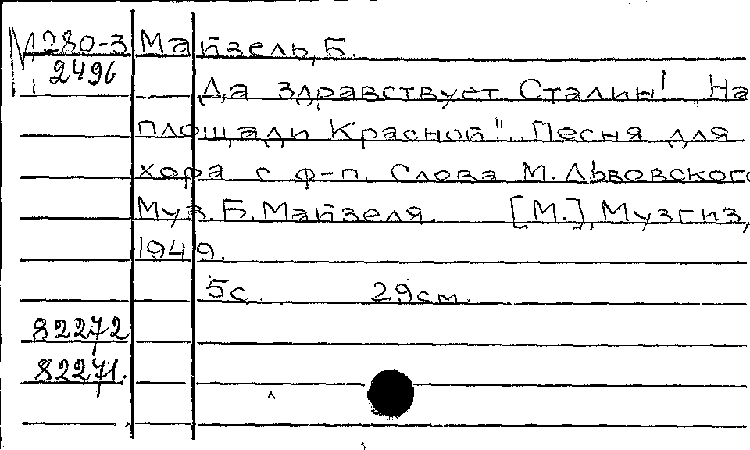 М 280-3 Майзель, Б.
2496
Да здравствует Сталин! На
площади Красной". Песня для
хора с ф-п. Слова М. Львовского
Муз. Б. Майзеля. [М.], Музгиз,
1949.
5с. 29см.
82272
82271.